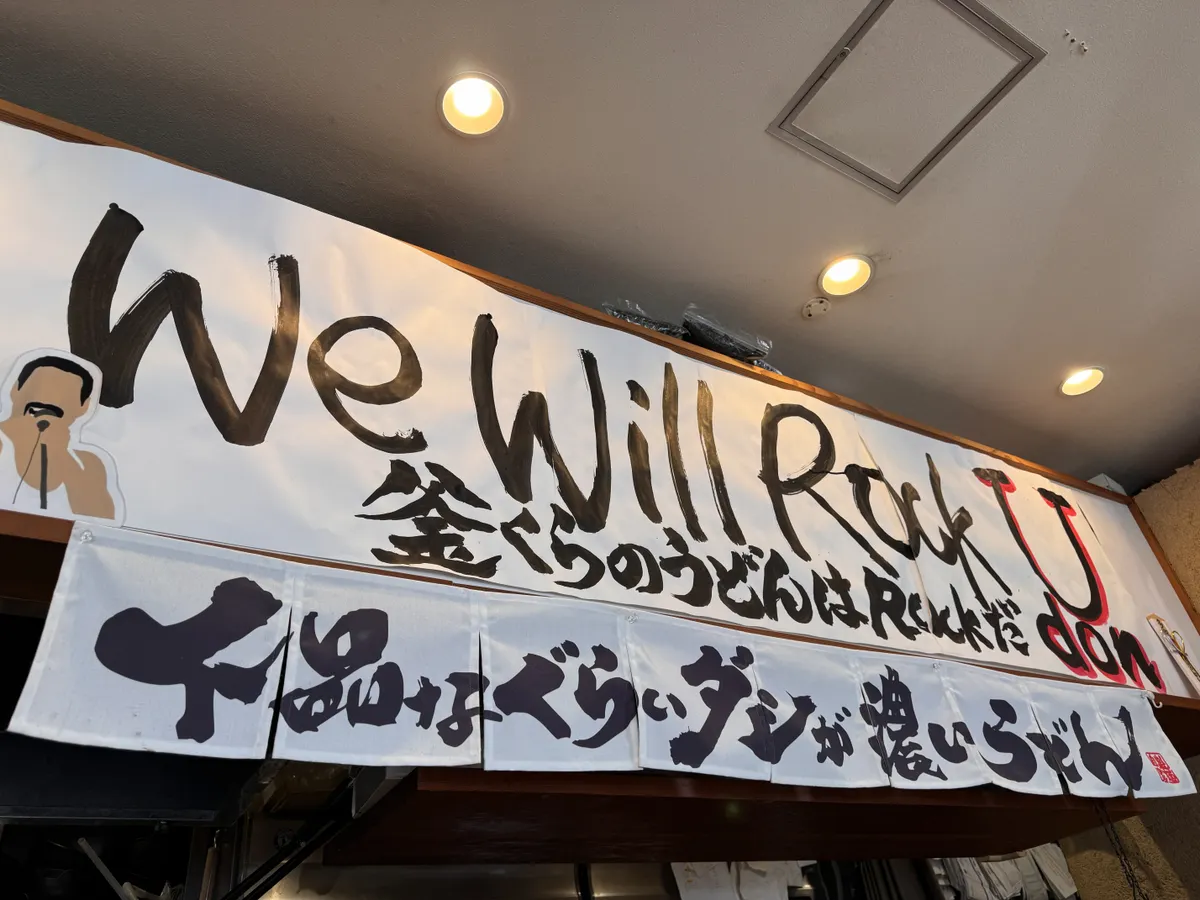 We Will Rock U
don
釜くらのうどんはRockだ
下品なぐらいダシが濃いうどん